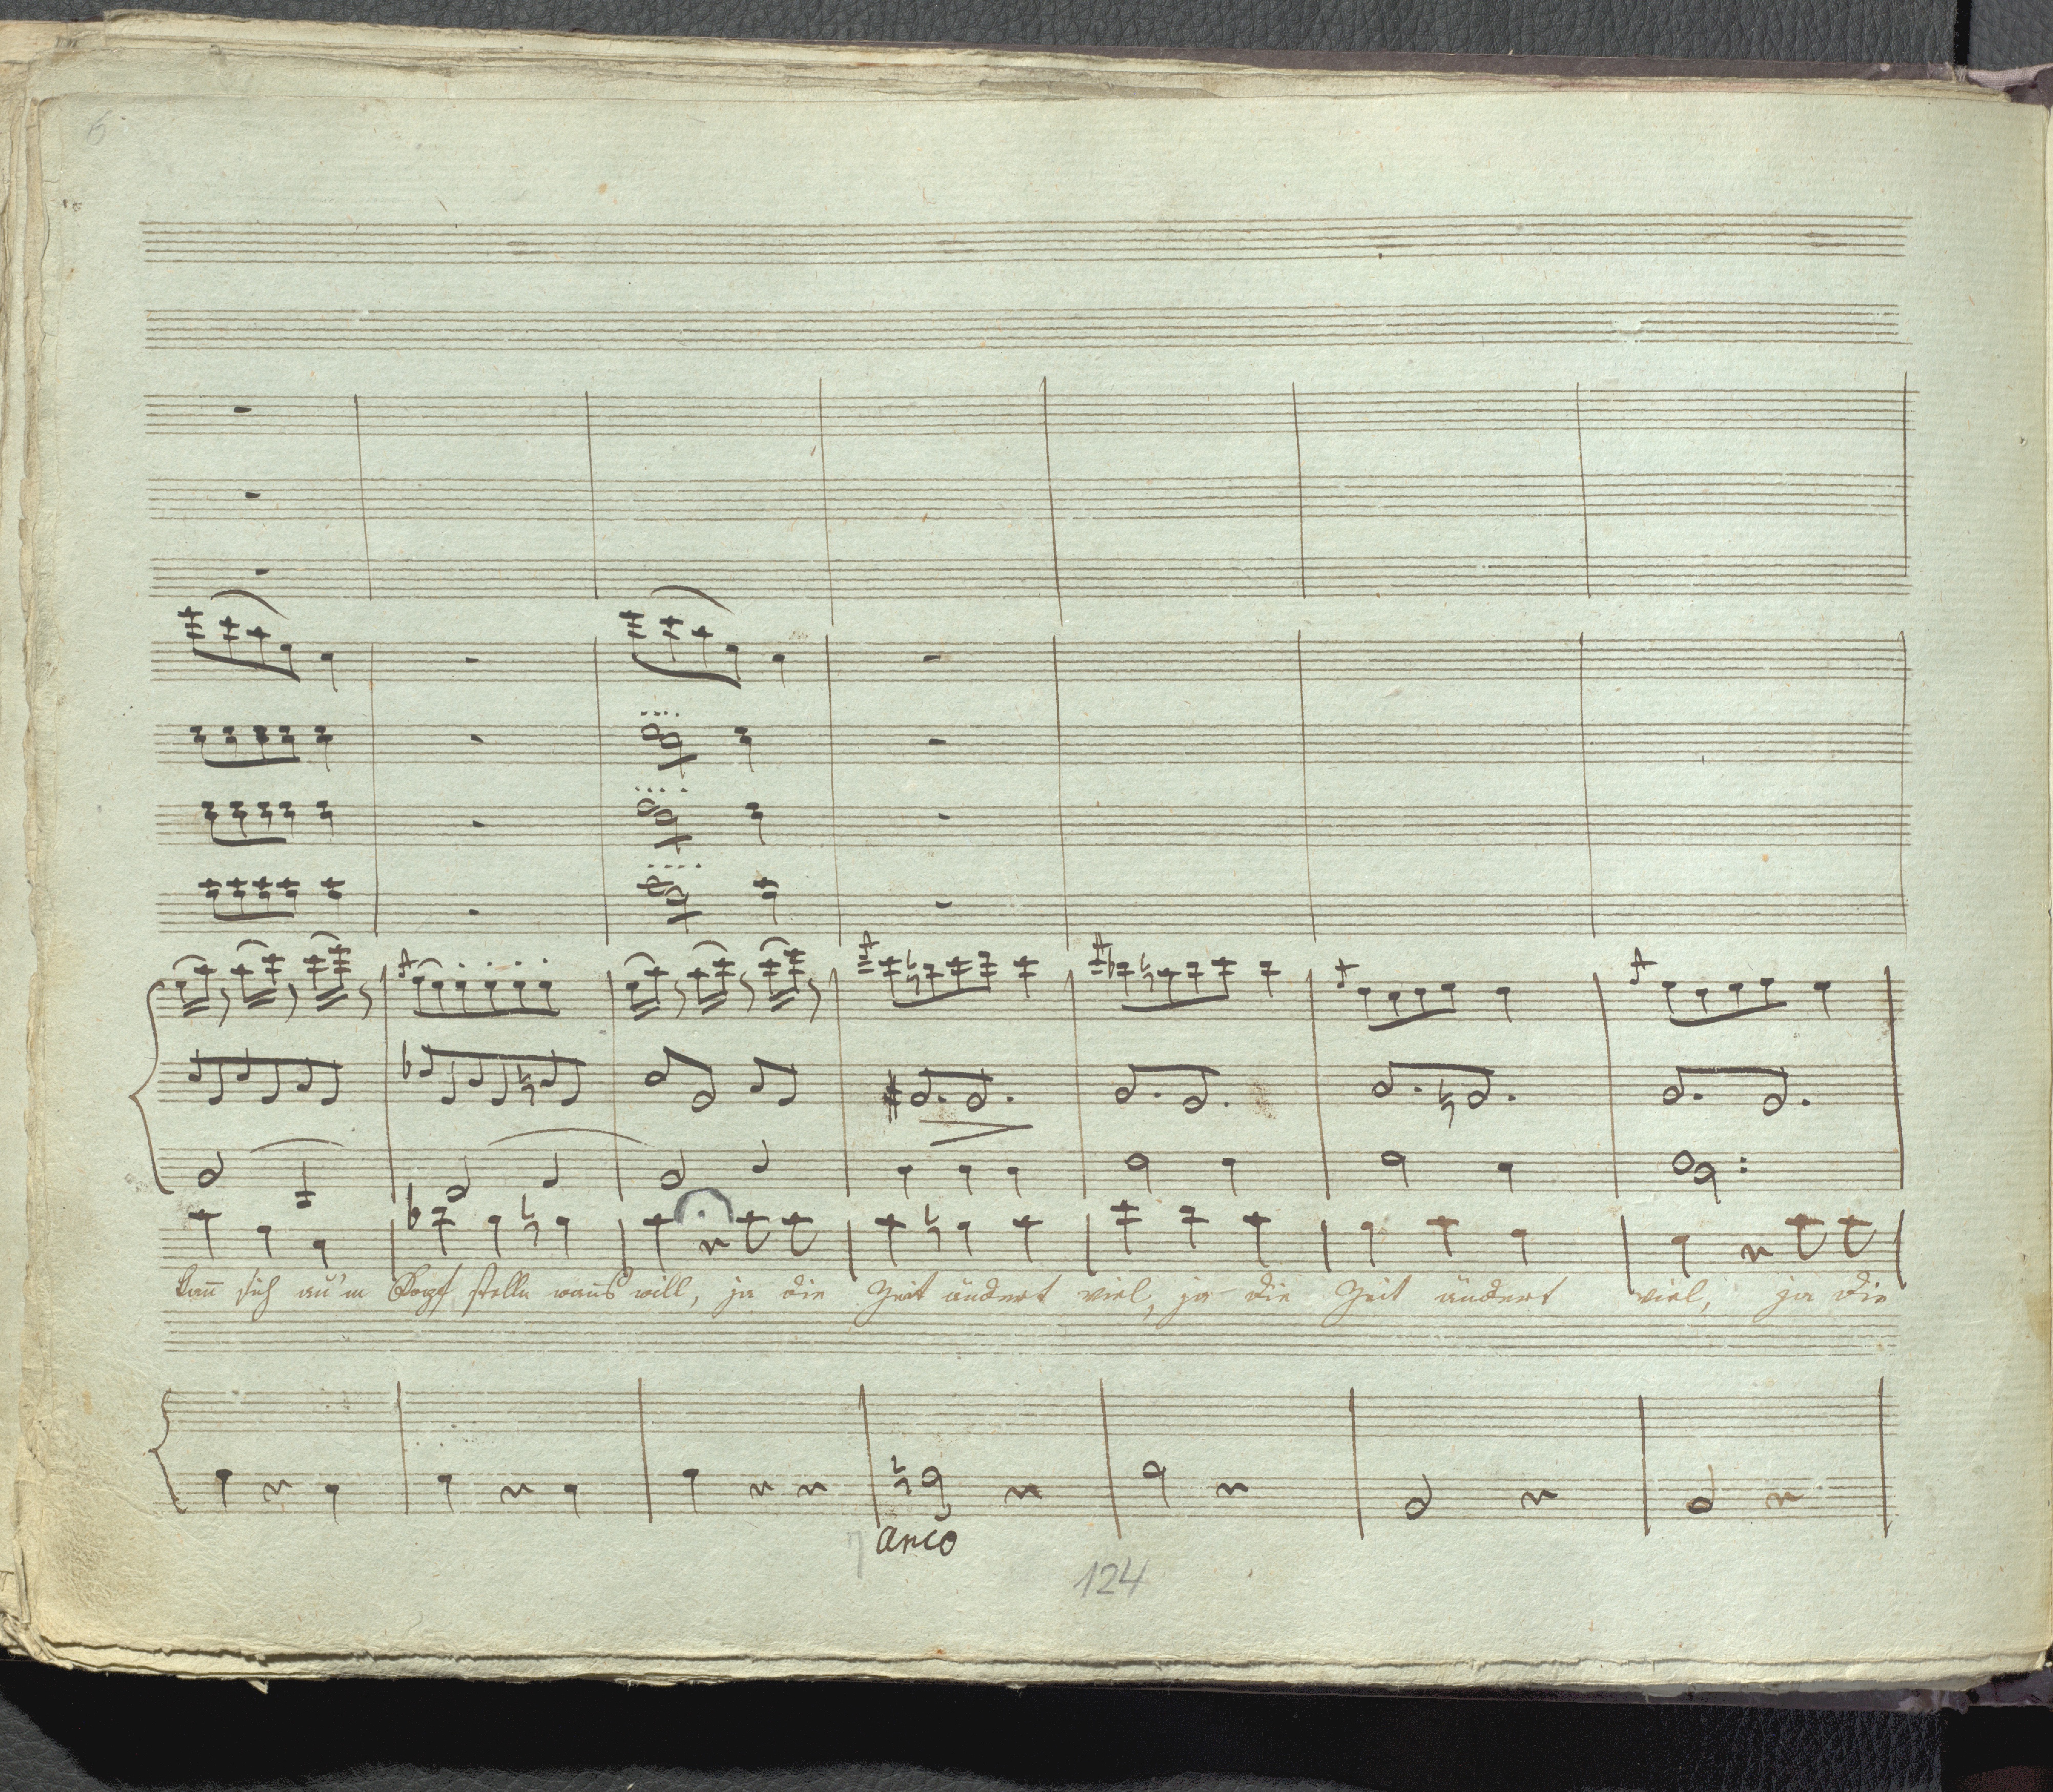 6
kan̄ sich au'm Kopf stelln waus will, ja die Zeit ändert viel, ja die Zeit ändert viel, ja die
arco
124